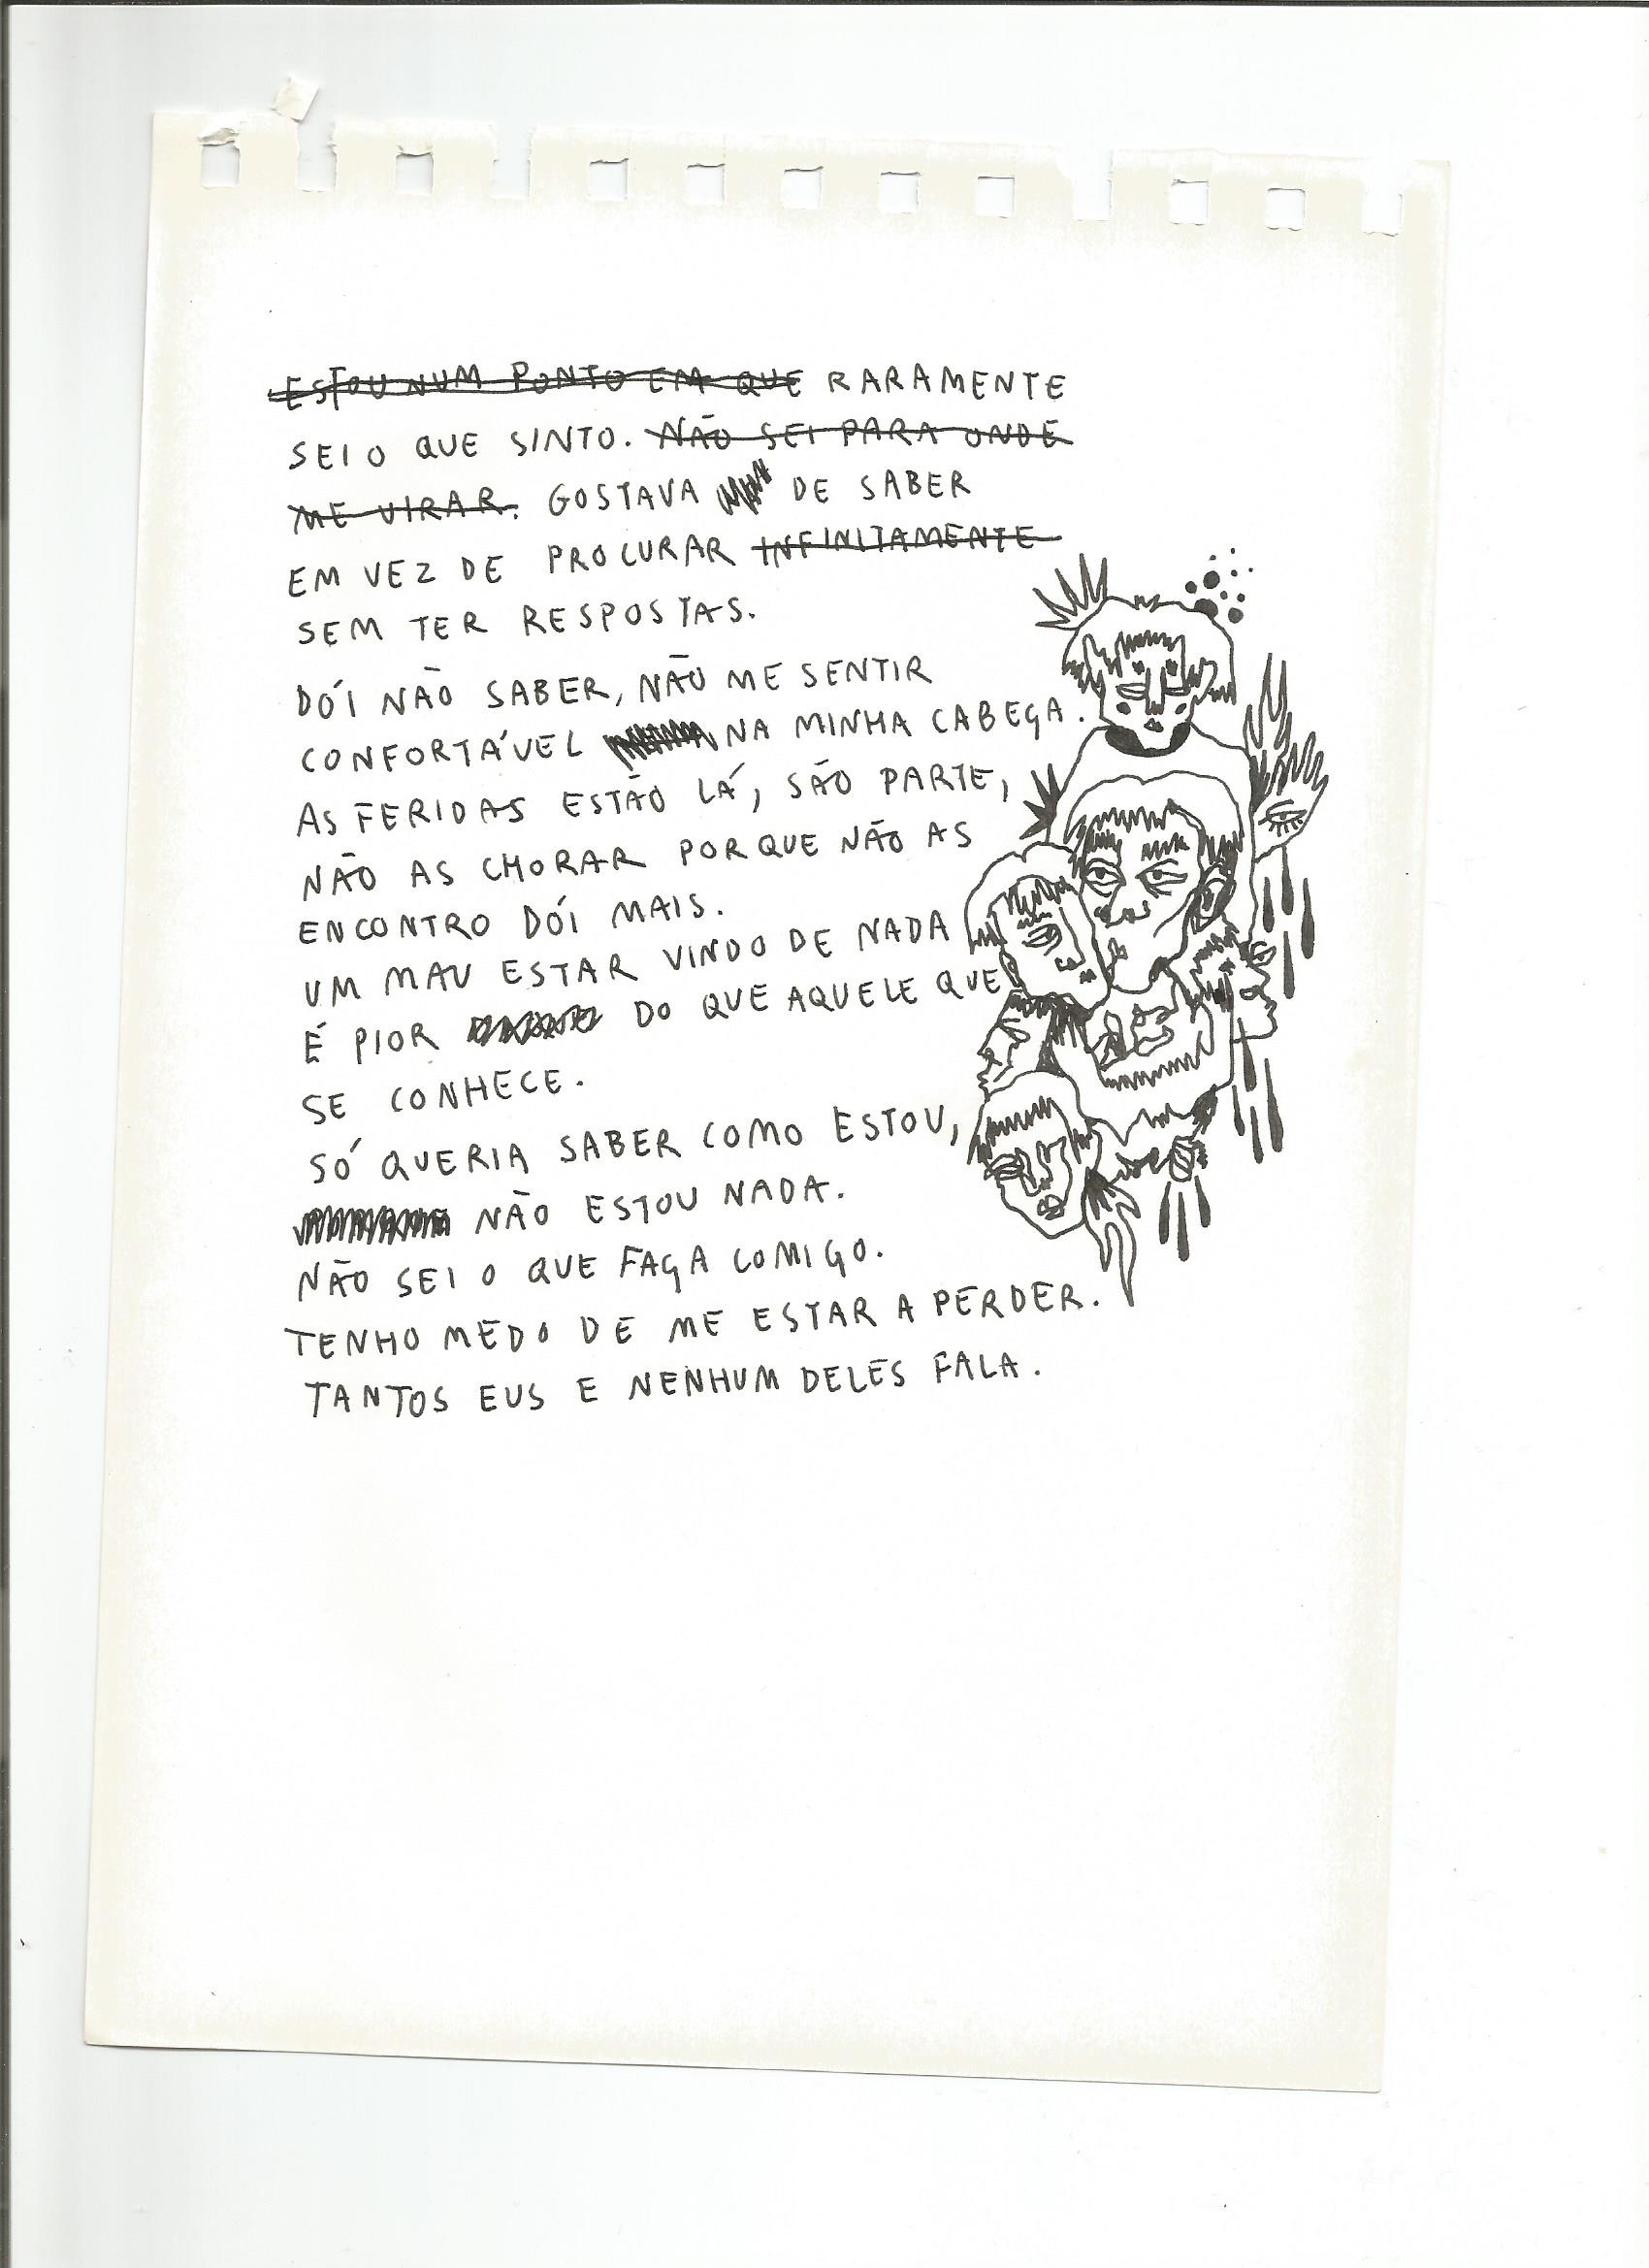 ESTOU NUM PONTO EM QUE RARAMENTE
SEI O QUE SINTO. NÃO SEI PARA ONDE
ME VIRAR. GOSTAVA DE SABER
EM VEZ DE PROCURAR INFINITAMENTE
SEM TER RESPOSTAS.
DÓI NÃO SABER, NÃO ME SENTIR
CONFORTÁVEL NA MINHA CABEÇA.
AS FERIDAS ESTÃO LÁ, SÃO PARTE,
NÃO AS CHORAR PORQUE NÃO AS
ENCONTRO DÓI MAIS.
UM MAU ESTAR VINDO DE NADA
É PIOR DO QUE AQUELE QUE
SE CONHECE.
SÓ QUERIA SABER COMO ESTOU,
NÃO ESTOU NADA.
NÃO SEI O QUE FAÇA COMIGO.
TENHO MEDO DE ME ESTAR A PERDER.
TANTOS EUS E NENHUM DELES FALA.